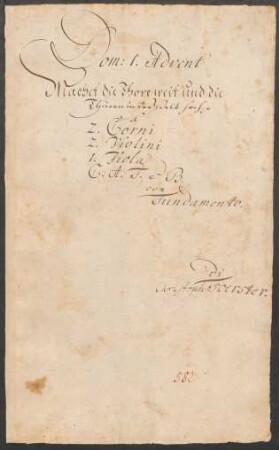 Dom: 1. Advent
Machet die Thore weit und die
Thüren in der Welt hoch.
à
2. Corni
2. Violini
1. Viola
C. A. T. e B.
con
Fundamento.
di
Christoph Foerster.